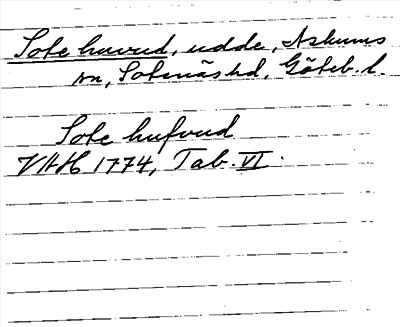 Sote huvud, udde, Askums
sn, Sotenäs hd, Göteb. l.
Sote hufvud
VAH 1774, Tab. VI.